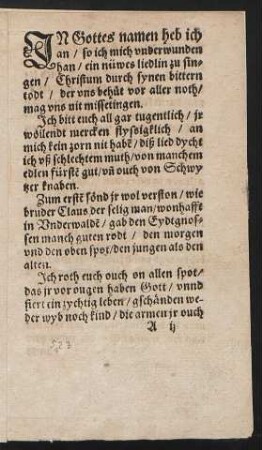 IN Gottes namen heb ich
an / so ich mich vnderwunden
han / ein nüwes liedlin zu sin-
gen / Christum durch synen bittern
todt / der vns behüt vor aller noth /
mag vns nit misselingen.
Ich bitt euch all gar tugentlich / jr
wöllendt mercken flyssigklich / an
mich kein zorn nit habt / diß lied dycht
ich vß schlechtem muth / von manchem
edlen fürstē gut / vñ ouch von Schwy
tzer knaben.
Zum erstē sönd jr wol verston / wie
bruder Claus der selig man / wonhafft
in Vnderwaldē / gab den Eydtgnos-
sen manch guten rodt / den morgen
vnd den oben spot / den jungen als den
alten.
Ich roth euch ouch on allen spot /
das jr vor ougen haben Gott / vnnd
fierē ein zychtig leben / gschänden we-
der wyb noch kind / die armen jr ouch
A ij
523